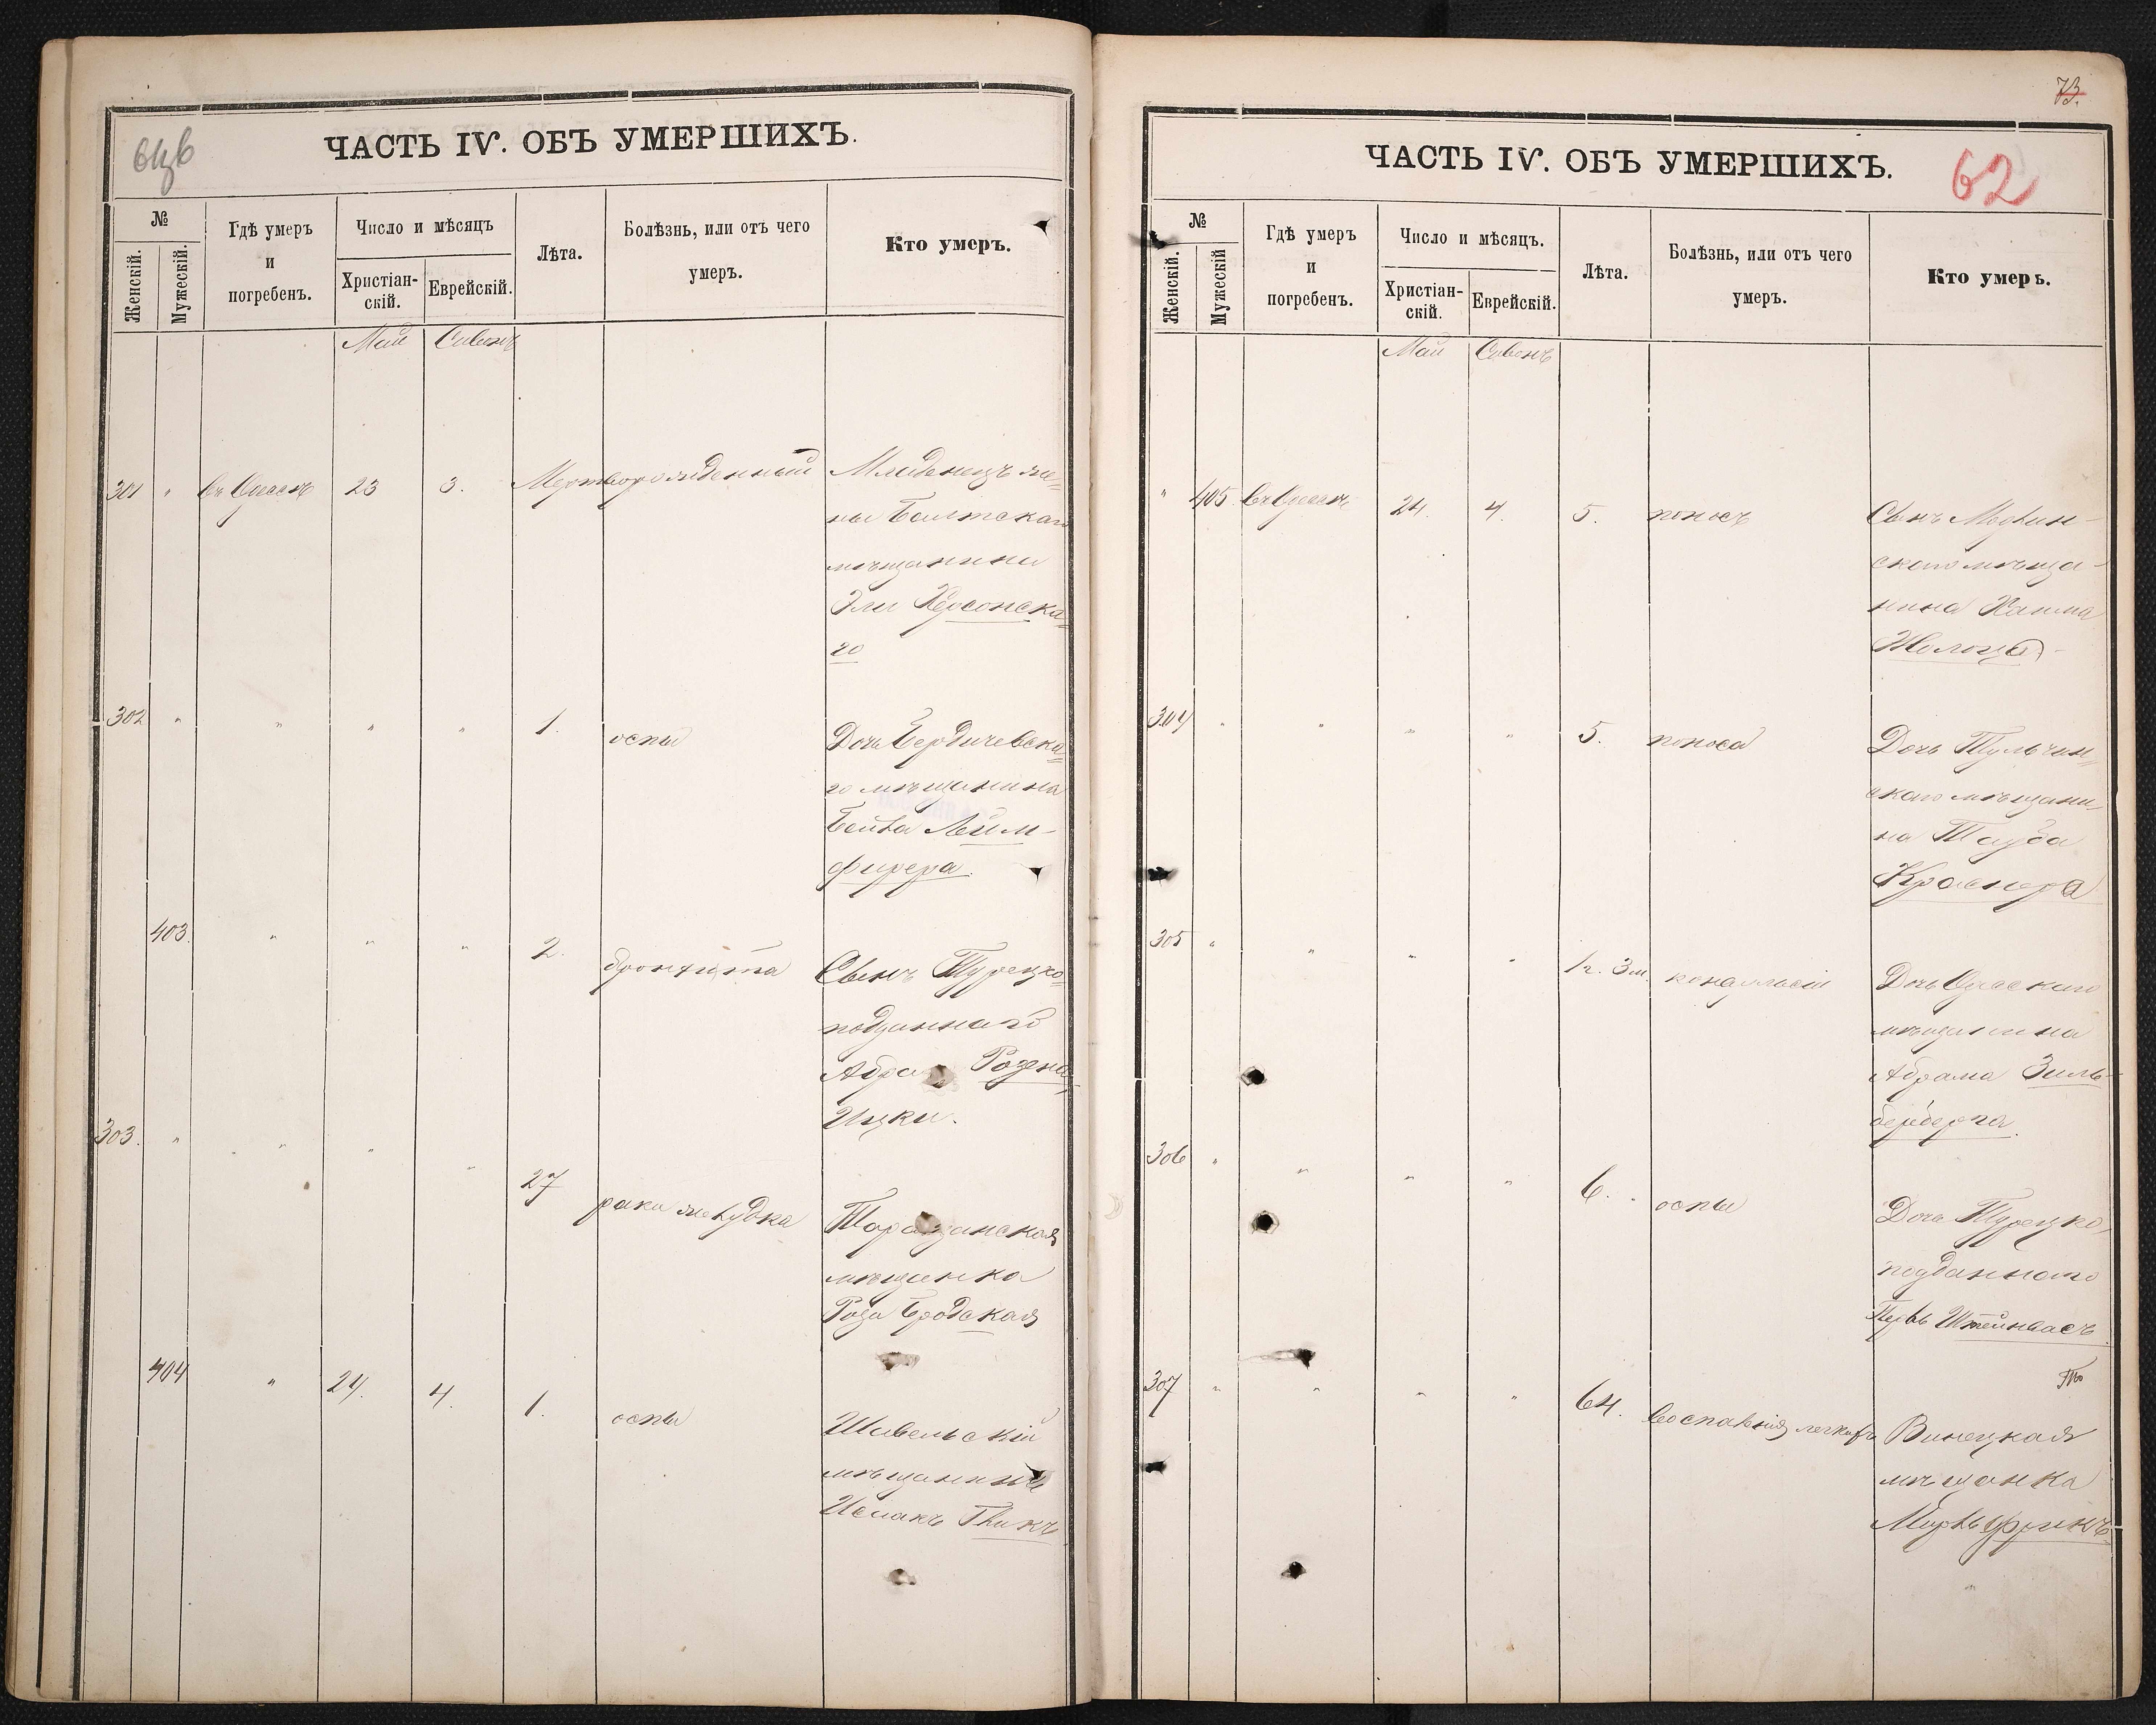 ЧАСТЬ IV. ОБЪ УМЕРШИХЪ.
№
Женскій.
Мужескій.
Гдѣ умеръ
и
погребенъ.
Число и мѣсяцъ
Христіан-
скій.
Еврейскій.
Лѣта.
Болѣзнь, или отъ чего
умеръ.
Кто умеръ.
Май Сивонъ
301 " въ Одессѣ 23 3. Мертворожденный Младенецъ же=
ны Балтскаго
мѣщанина
Эли Херсонска=
го
302 " " " " 1. оспы Дочь Бердичевска=
го мѣщанина
фирера.
403. " " " 2. бронхита Сынъ Турецко=
подданнаго
303. " " " " 27 рака желудка Таращанская
мѣщанка
Роза Бродская
404 " 24. 4. 1. оспы Шавельскій
мѣщанинъ
73.
ЧАСТЬ IV. ОБЪ УМЕРШИХЪ.
62
№
Женскій.
Мужескій
Гдѣ умеръ
и
погребенъ.
Число и мѣсяцъ.
Христіан-
скій.
Еврейскій.
Лѣта.
Болѣзнь, или отъ чего
умеръ.
Кто умеръ.
Май Сивенъ
" 405. въ Одессѣ 24. 4. 5. поносъ Сынъ
скаго мѣща-
нина Хаима
304 " " " " 5. поноса Дочь Тульчин=
скаго мѣщани=
на Тауба
Краснера
305 " " " " 1 г. 3 м. Дочь Одесскаго
мѣщанина
Абрама Зиль-
берберга.
306 " " " " 6. оспы Дочь Турецко
подданнаго
307 " " " " 64. воспаленія легкихъ Винецкая
мѣщанка